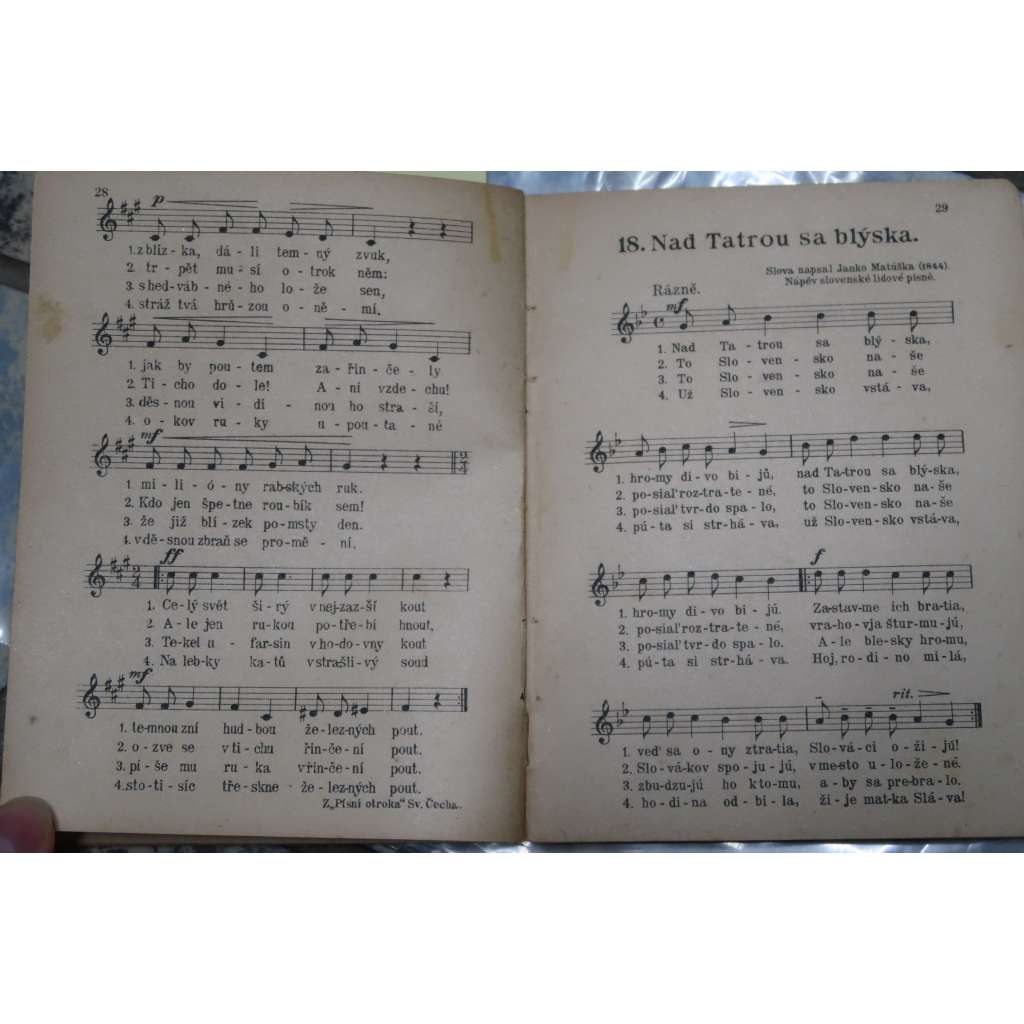 28
p
1. z blíz - ka, dá - li tem - ný zvuk,
2. tr - pět mu - sí o - trok něm:
3. s hed - váb - né - ho lo - že sen,
4. stráž tvá hrů - zou o - ně - mí.
1. jak by pou - tem za - řin - če - ly
2. Ti - cho do - le! A - ní vzde - chu!
3. děs - nou vi - di - nou ho stra - ší,
4. o - kov ru - ky u - pou - ta - né
mf
1. mi - li - ó - ny rab - ských ruk.
2. Kdo jen špe - tne rou - bík sem!
3. že již blí - zek po - msty den.
4. v dě - snou zbraň se pro - mě - ní.
ff
1. Ce - lý svět ši - rý v nej - zaz - ší kout
2. A - le jen ru - kou po - tře - bí hnout,
3. Te - kel u - far - sin v ho - do - vny kout
4. Na leb - ky ka - tů v straš - li - vý soud
mf
1. te - mnou zní hud - bou že - lez - ných pout.
2. o - zve se v ti - chu řin - če - ní pout.
3. pí - še mu ru - ka v řin - če - ní pout.
4. sto - ti - síc tře - skne že - lez - ných pout.
Z „Písní otroka“ Sv. Čecha.
29
18. Nad Tatrou sa blýska.
Slova napsal Janko Matúška (1844).
Nápěv slovenské lidové písně.
Rázně.
mf
1. Nad Ta - trou sa blý - ska,
2. To Slo - ven - sko na - še
3. To Slo - ven - sko na - še
4. Už Slo - ven - sko vstá - va,
1. hro - my di - vo bi - jú, nad Ta - trou sa blý - ska,
2. po - siaľ roz - tra - te - né, to Slo - ven - sko na - še
3. po - siaľ tvr - do spa - lo, to Slo - ven - sko na - še
4. pú - ta si str - há - va, už Slo - ven - sko vstá - va,
f
1. hro - my di - vo bi - jú. Za - stav - me ich bra - tia,
2. po - siaľ roz - tra - te - né, vra - ho - vja štur - mu - jú,
3. po - siaľ tvr - do spa - lo. A - le ble - sky hro - mu,
4. pú - ta si str - há - va. Hoj, ro - di - no mi - lá,
rit.
1. veď sa o - ny ztra - tia, Slo - vá - ci o - ži - jú!
2. Slo - vá - kov spo - ju - jú, v me - sto u - lo - že - né.
3. zbu - dzu - jú ho k to - mu, a - by sa pre - bra - lo.
4. ho - di - na od - bi - la, ži - je mat - ka Slá - va!